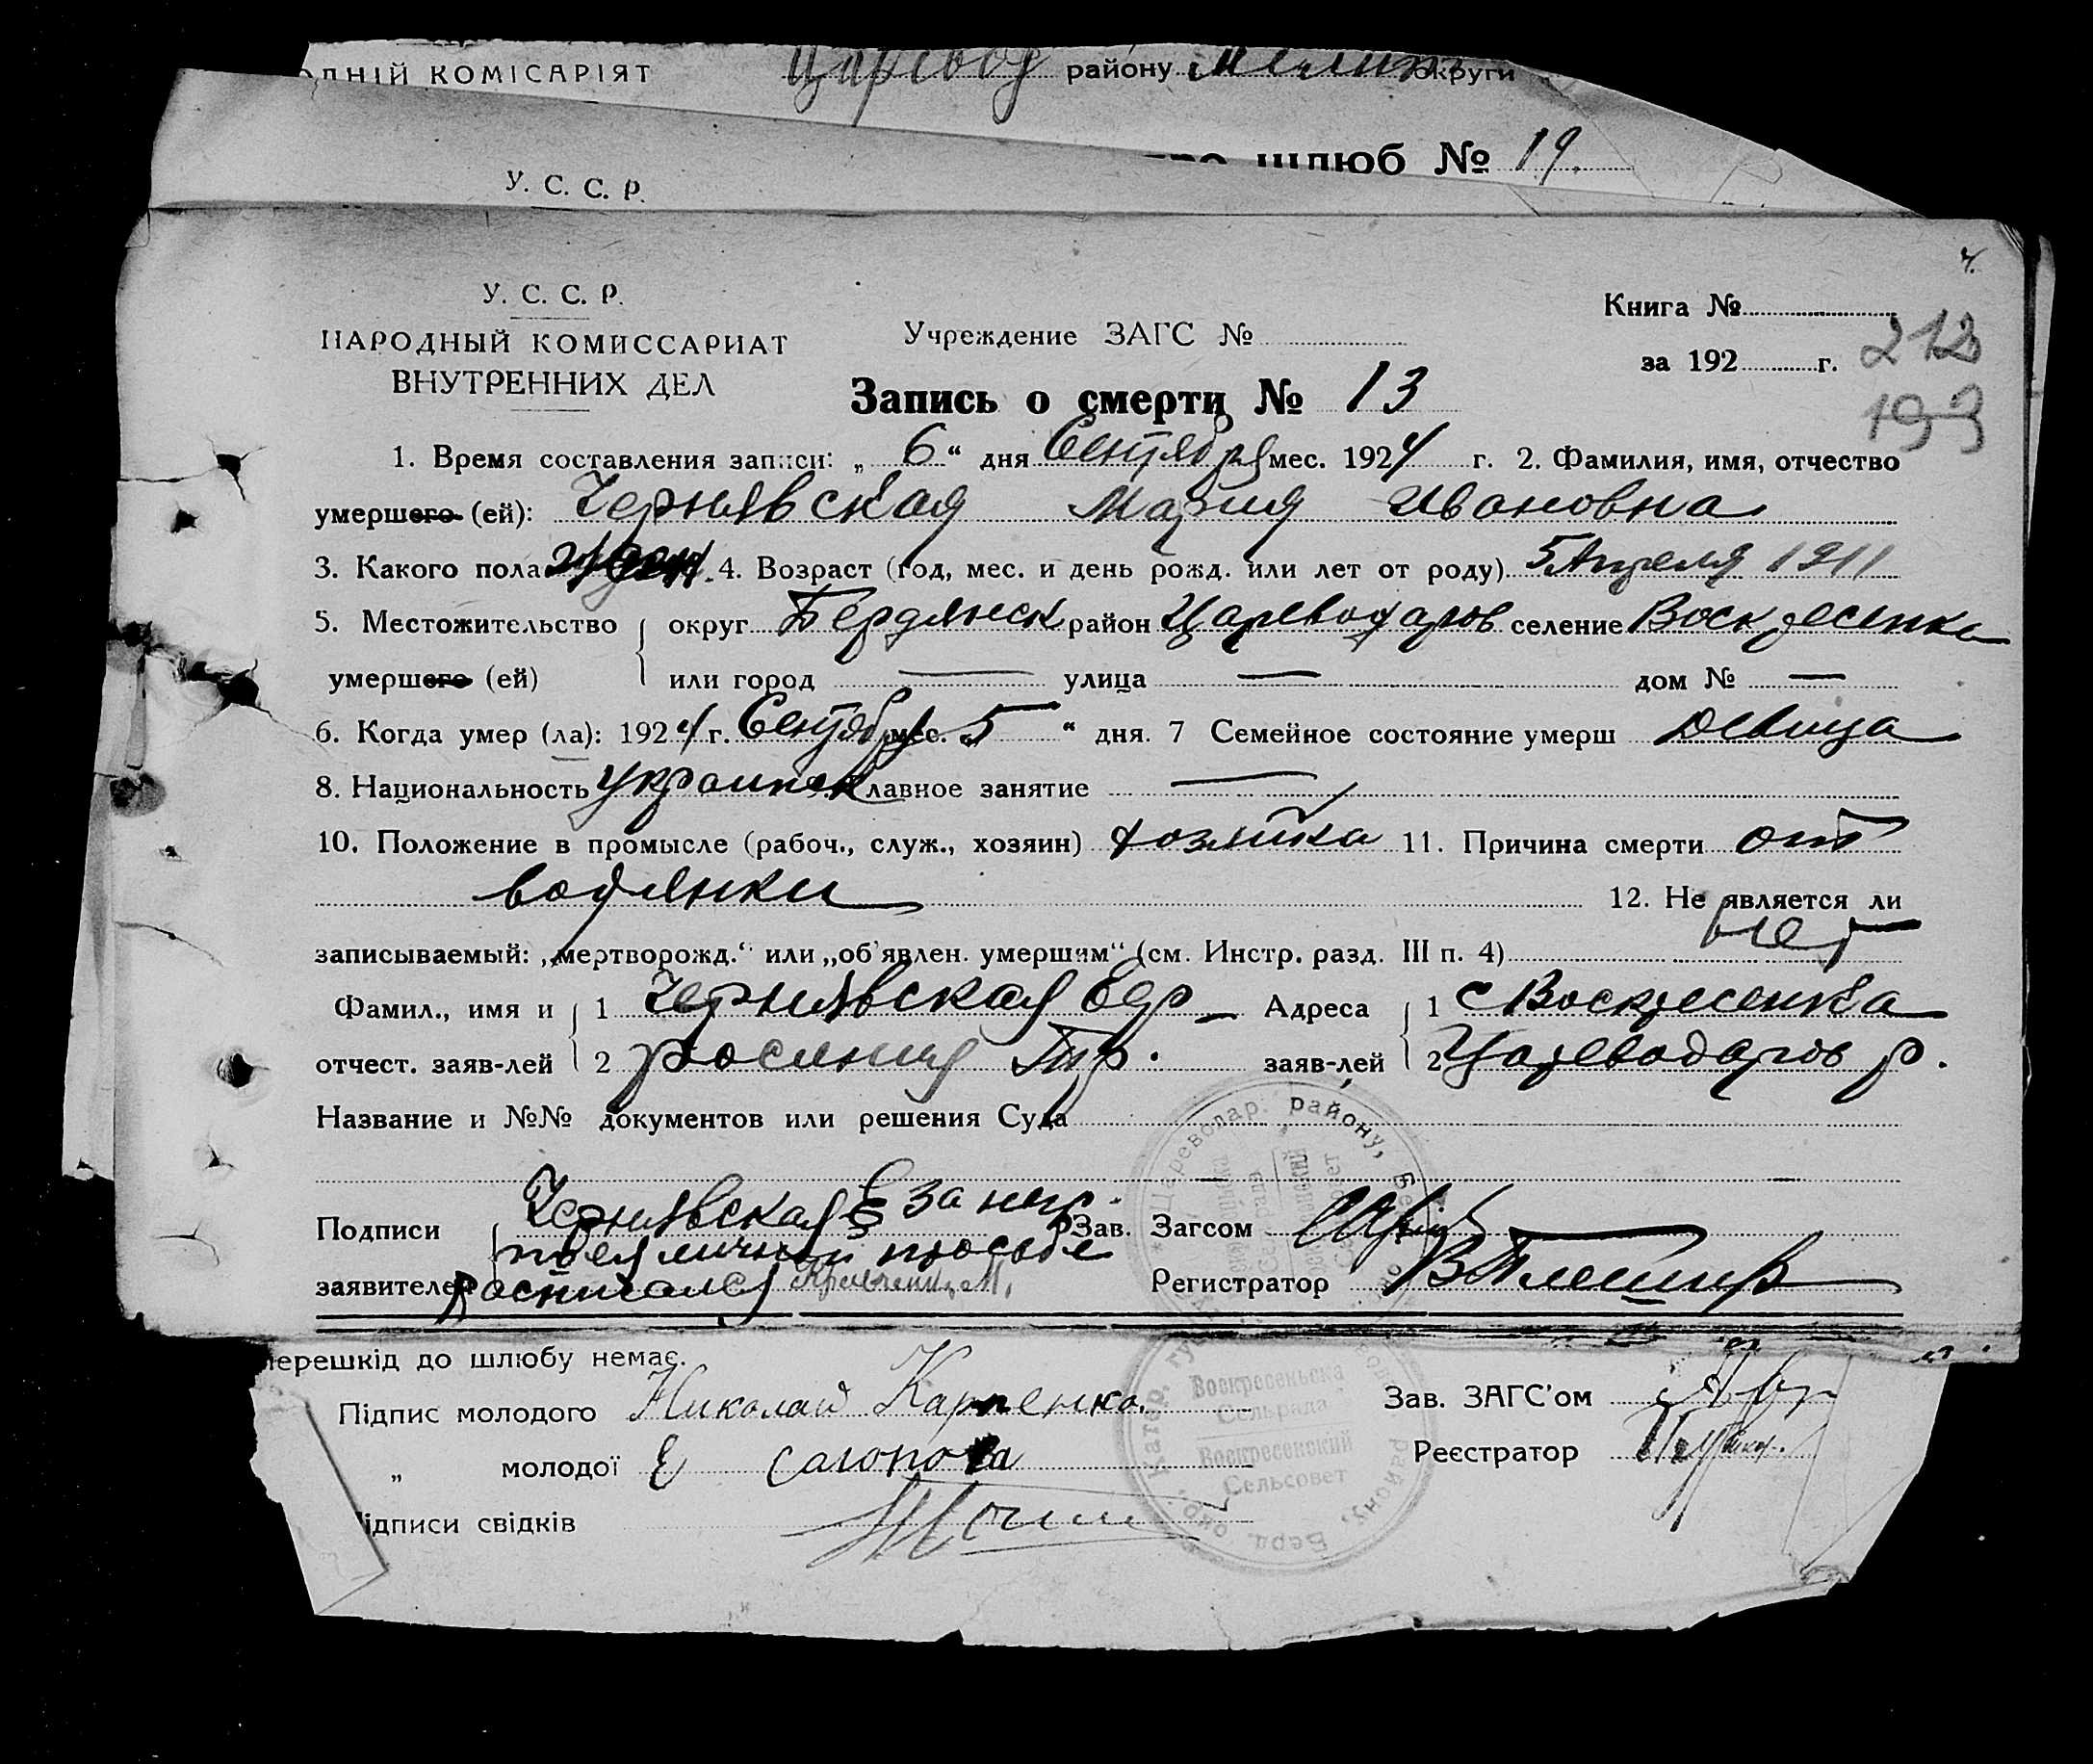 ОДНІЙ КОМІСАРІЯТ Царевод району Мелит округи
шлюб № 19.
У. С. С. Р.
4.
У. С. С. Р.
НАРОДНЫЙ КОМИССАРИАТ
ВНУТРЕННИХ ДЕЛ
Учреждение ЗАГС №
Книга №
за 192 г.
212
193
Запись о смерти № 13
1. Время составления записи: „ 6 “ дня Сентября мес. 1924 г. 2. Фамилия, имя, отчество
умершего (ей): Чернявская Мария Ивановна
3. Какого пола жен. 4. Возраст (год, мес. и день рожд. или лет от роду) 5 Апреля 1911
5. Местожительство округ Бердянск район Цареводаров селение Воскресенка
умершего (ей) или город — улица — дом № —
6. Когда умер (ла): 1924 г. Сентября мес. „ 5 “ дня. 7 Семейное состояние умерш девица
8. Национальность украинск главное занятие —
10. Положение в промысле (рабоч., служ., хозяин) хозяйка 11. Причина смерти от
водянки 12. Не является ли
записываемый: „мертворожд.“ или „об'явлен. умершим“ (см. Инстр. разд. III п. 4) нет
Фамил., имя и 1 Чернявская Еф- Адреса 1 с Воскресенка
отчест. заяв-лей 2 росиния Тр. заяв-лей 2 Цареводаров р.
Название и №№ документов или решения Суда
Подписи Чернявская Е за нгр. Зав. Загсом
по ея личной просьбе
заявителей Расписался Кравченко М. Регистратор В Плешир
Цареводар. району,
перешкід до шлюбу немає.
Підпис молодого Николай Карпенко. Зав. ЗАГС'ом
„ молодої Е Сагонова Реєстратор
Підписи свідків
Воскресеньска
Сельрада
Воскресенский
Сельсовет
Катер. гу
району, Берд. окр.